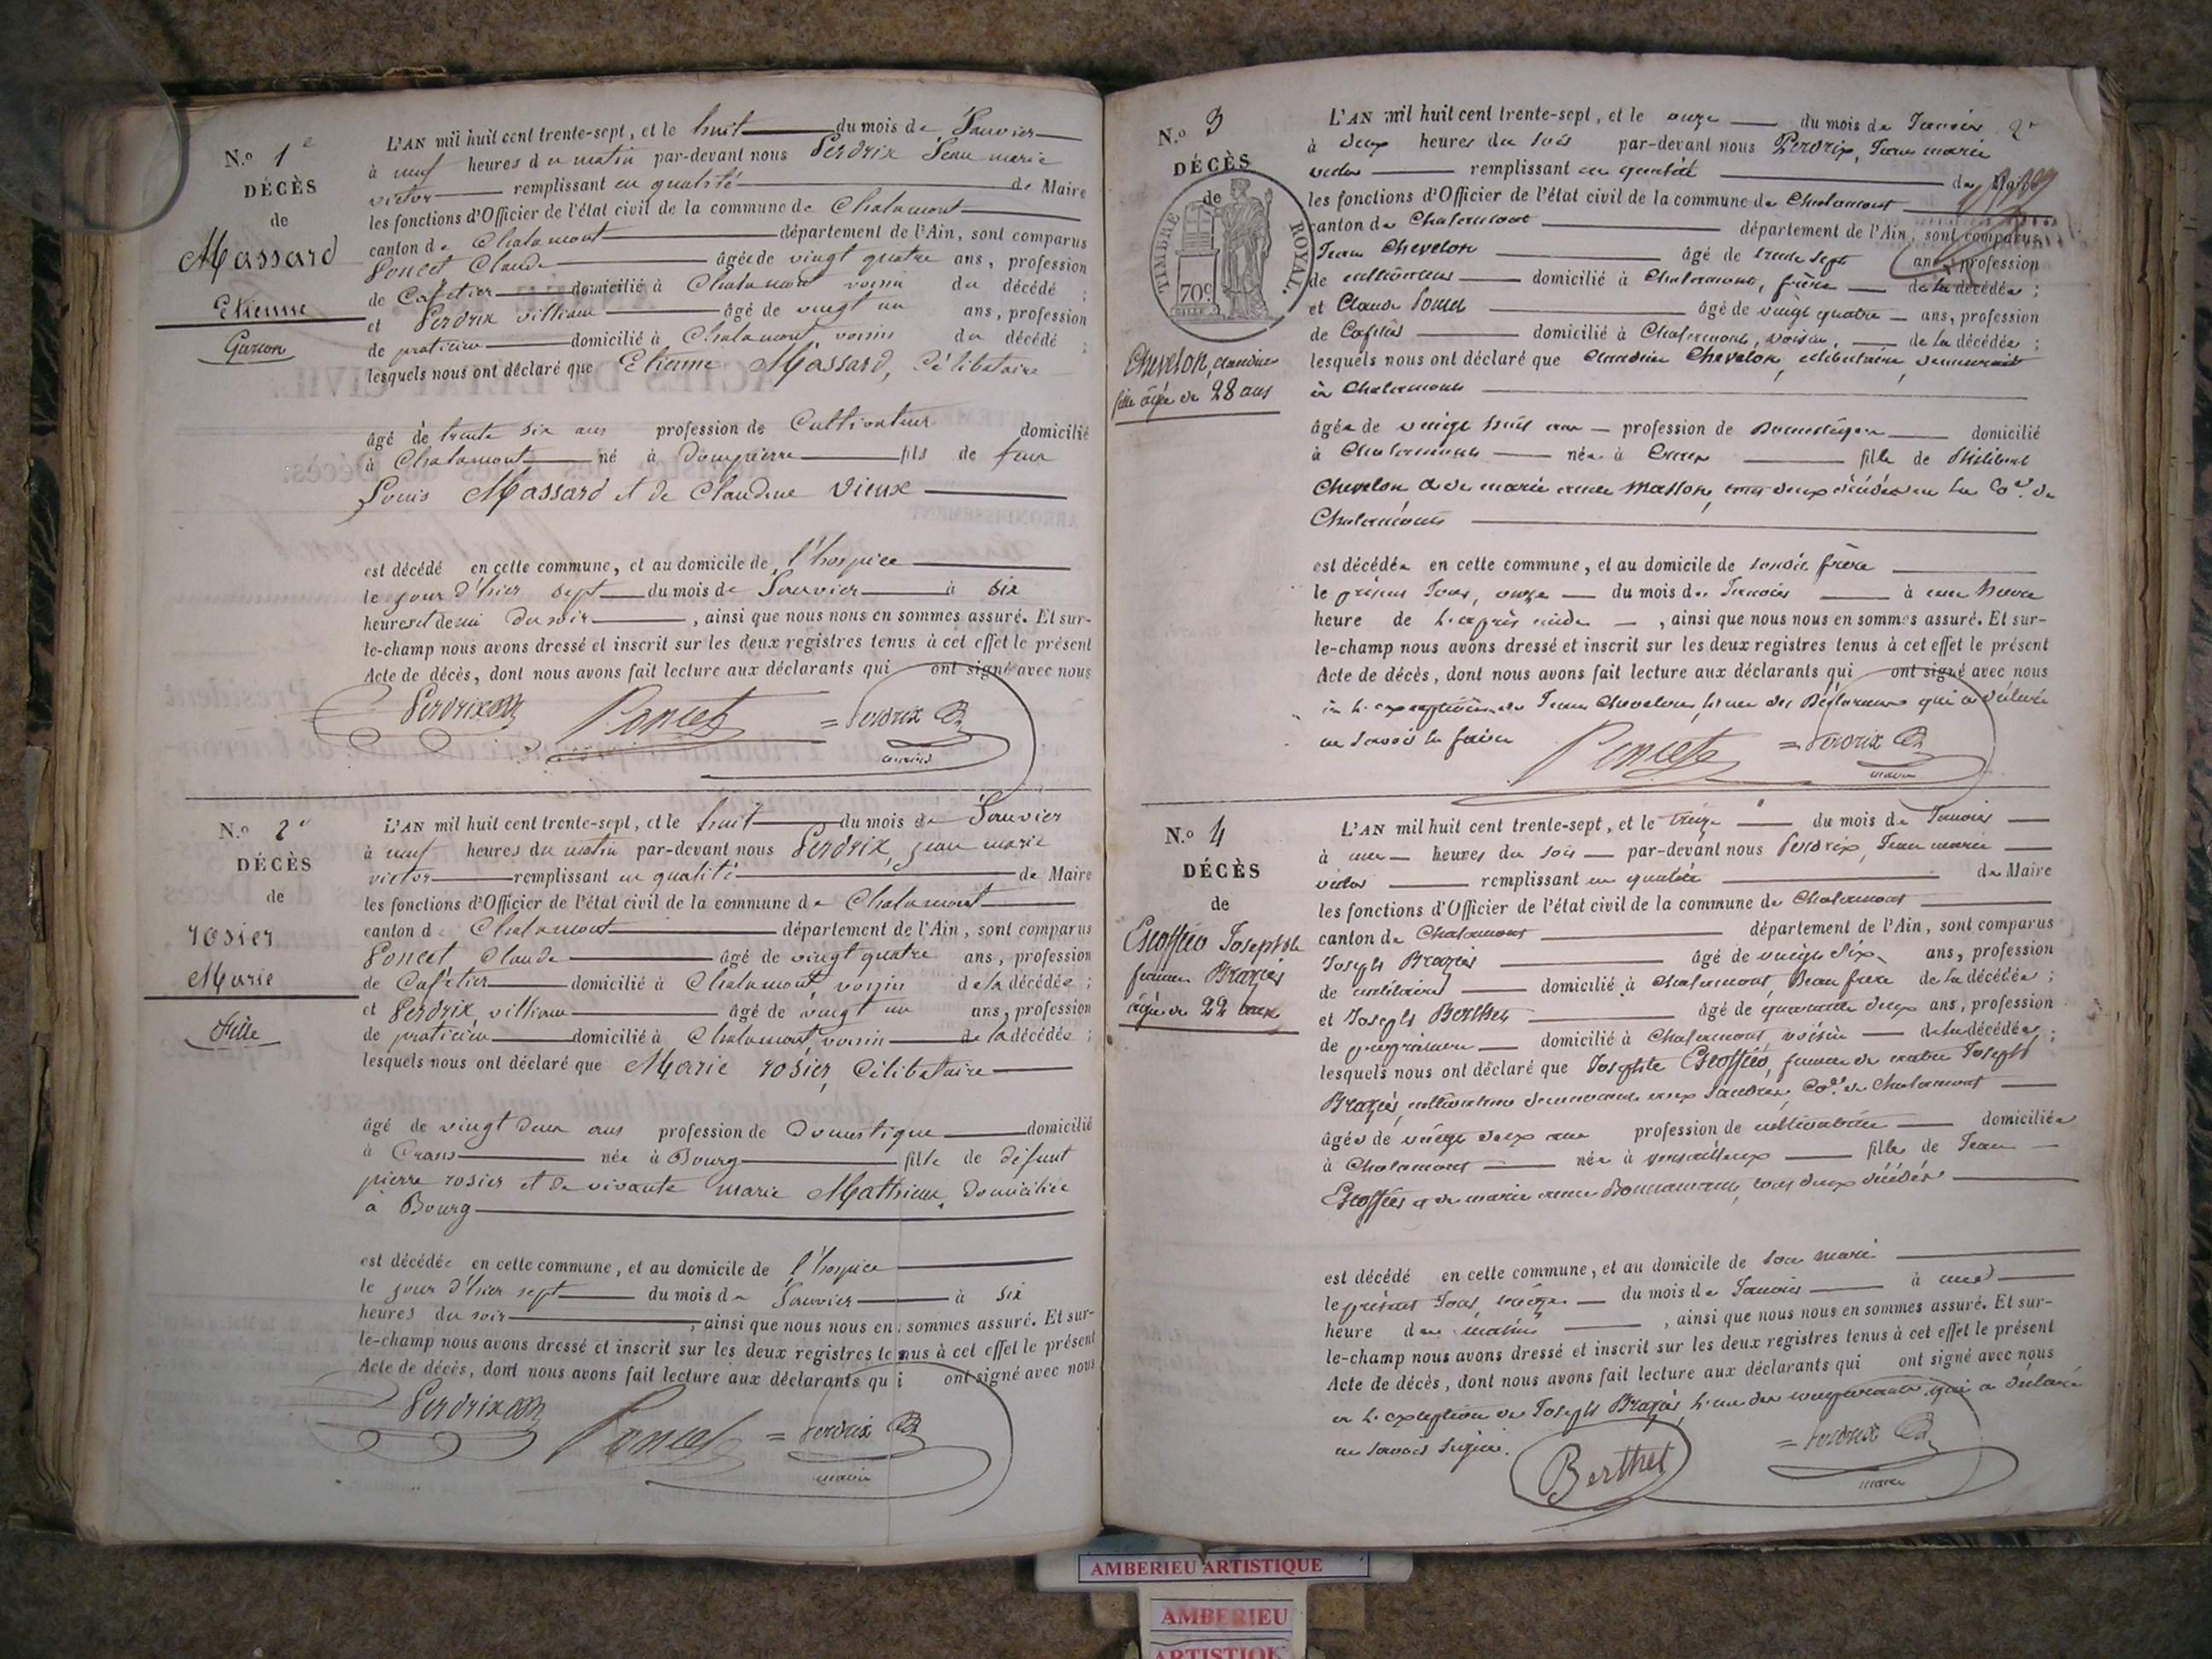 N.o 1e
DÉCÈS
de
Massard
Etienne
Garcon
L'AN mil huit cent trente-sept, et le huit du mois de Janvier
à neuf heures du matin par-devant nous Perdrix Jean marie
victor remplissant en qualité de Maire
les fonctions d'Officier de l'état civil de la commune de Chalamont
canton de Chalamont département de l'Ain, sont comparus
Poncet Claude âgé de vingt quatre ans, profession
de Cafetier domicilié à Chalamont voisin du décédé ;
et Perdrix villiam âgé de vingt un ans, profession
de praticien domicilié à Chalamont, voisin du décédé ;
lesquels nous ont déclaré que Etienne Massard, Célibataire
âgé de trente six ans profession de Cultivateur domicilié
à Chalamont né à Dompierre fils de feu
Louis Massard et de Claudine Vieux
est décédé en cette commune, et au domicile de l'hospice
le jour d'hier sept du mois de Janvier à six
heures et demi du soir, ainsi que nous nous en sommes assuré. Et sur-
le-champ nous avons dressé et inscrit sur les deux registres tenus à cet effet le présent
Acte de décès, dont nous avons fait lecture aux déclarants qui ont signé avec nous
Perdrix Poncet = Perdrix
maire
N.o 2e
DÉCÈS
de
rosier
Marie
fille
L'AN mil huit cent trente-sept, et le huit du mois de Janvier
à neuf heures du matin par-devant nous Perdrix, jean marie
victor remplissant en qualité de Maire
les fonctions d'Officier de l'état civil de la commune de Chalamont
canton de Chalamont département de l'Ain, sont comparus
Poncet Claude âgé de vingt quatre ans, profession
de Cafétier domicilié à Chalamont, voisin de la décédée ;
et Perdrix, villiam âgé de vingt un ans, profession
de praticien domicilié à Chalamont, voisin de la décédée ;
lesquels nous ont déclaré que Marie rosier, Célibataire
âgé de vingt deux ans profession de Domestique domicilié
à Crans née à Bourg fille de défunt
pierre rosier et de vivante marie Mathieux, domiciliée
à Bourg
est décédée en cette commune, et au domicile de l'hospice
le jour d'hier sept du mois de Janvier à six
heures du soir, ainsi que nous nous en sommes assuré. Et sur-
le-champ nous avons dressé et inscrit sur les deux registres tenus à cet effet le présent
Acte de décès, dont nous avons fait lecture aux déclarants qui ont signé avec nous
Perdrix Poncet = Perdrix
maire
N.o 3
DÉCÈS
de
TIMBRE ROYAL.
70c
Chevelon, claudine
fille âgée de 28 ans
L'AN mil huit cent trente-sept, et le onze du mois de Janvier
à deux heures du soir par-devant nous Perdrix, Jean marie
victor remplissant en qualité de Maire
les fonctions d'Officier de l'état civil de la commune de Chalamont
canton de Chalamont département de l'Ain, sont comparus
Jean Chevelon âgé de trente sept ans, profession
de cultivateur domicilié à Chalamont, frère de la décédée ;
et Claude Poncet âgé de vingt quatre ans, profession
de Cafetier domicilié à Chalamont, voisin, de la décédée ;
lesquels nous ont déclaré que Claudine Chevelon, célibataire, demeurant
à Chalamont
âgée de vingt huit ans profession de Domestique domicilié
à Chalamont née à fille de Philibert
Chevelon & de marie anne Masson, tous deux décédés en la Co.ne de
Chalamont
est décédée en cette commune, et au domicile de sondit frère
le présent Jour, onze du mois de Janvier à une heure
heure de l'après midi, ainsi que nous nous en sommes assuré. Et sur-
le-champ nous avons dressé et inscrit sur les deux registres tenus à cet effet le présent
Acte de décès, dont nous avons fait lecture aux déclarants qui ont signé avec nous
à l'exception de Jean Chevelon, l'un des Déclarans qui a déclaré
ne savoir le faire Poncet = Perdrix
maire
N.o 4
DÉCÈS
de
Escoffier Josephte
femme Brazier
âgée de 22 ans
L'AN mil huit cent trente-sept, et le treize du mois de Janvier
à une heures du soir par-devant nous Perdrix, Jean marie
victor remplissant en qualité de Maire
les fonctions d'Officier de l'état civil de la commune de Chalamont
canton de Chalamont département de l'Ain, sont comparus
Joseph Brazier âgé de vingt six ans, profession
de domicilié à Chalamont, Beau frère de la décédée ;
et Joseph Berthet âgé de quarante deux ans, profession
de propriétaire domicilié à Chalamont, voisin de la décédée ;
lesquels nous ont déclaré que Josephte Escoffier, femme de autre Joseph
Brazier, cultivateur demeurant aux Co.ne de Chalamont
âgée de vingt deux ans profession de cultivatrice domiciliée
à Chalamont née à versailleux fille de Jean
Escoffier & de marie anne Bonnamant, tous deux décédés
est décédé en cette commune, et au domicile de son mari
le présent Jour, treize du mois de Janvier à une
heure du matin, ainsi que nous nous en sommes assuré. Et sur-
le-champ nous avons dressé et inscrit sur les deux registres tenus à cet effet le présent
Acte de décès, dont nous avons fait lecture aux déclarants qui ont signé avec nous
à l'exception de Joseph Brazier, l'un des comparants qui a déclaré
ne savoir signer. Berthet = Perdrix
maire
AMBERIEU ARTISTIQUE
AMBERIEU
ARTISTIQUE